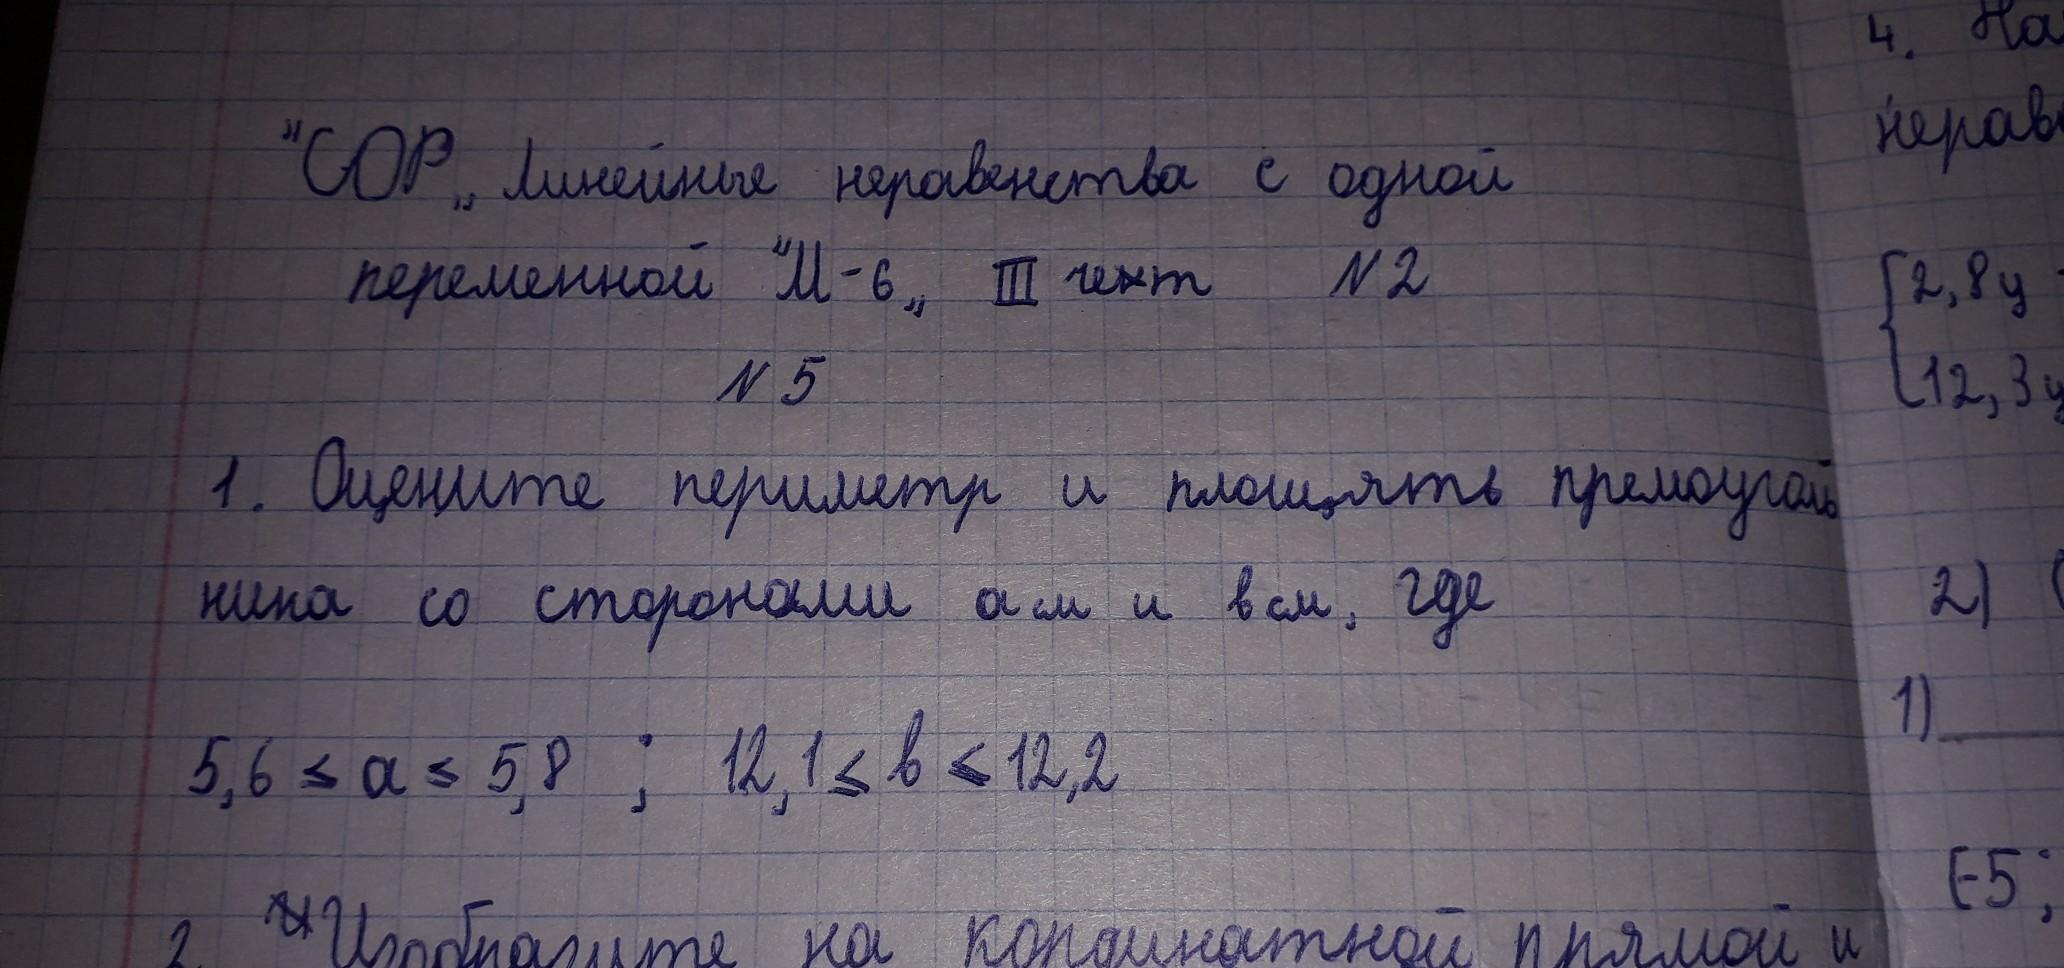 "СОР„ Линейные неравенства с одной
переменной "М-6„ III чент N2
N5
1. Оцените периметр и площять премоуголь
ника со сторонами a см и b см, где
5,6 ≤ a ≤ 5,8 ; 12,1 ≤ b ≤ 12,2
2. Изобразите на коринатной прямой и
4. На
нерав
{2,8y
12,3y
2) (
1)
(-5;